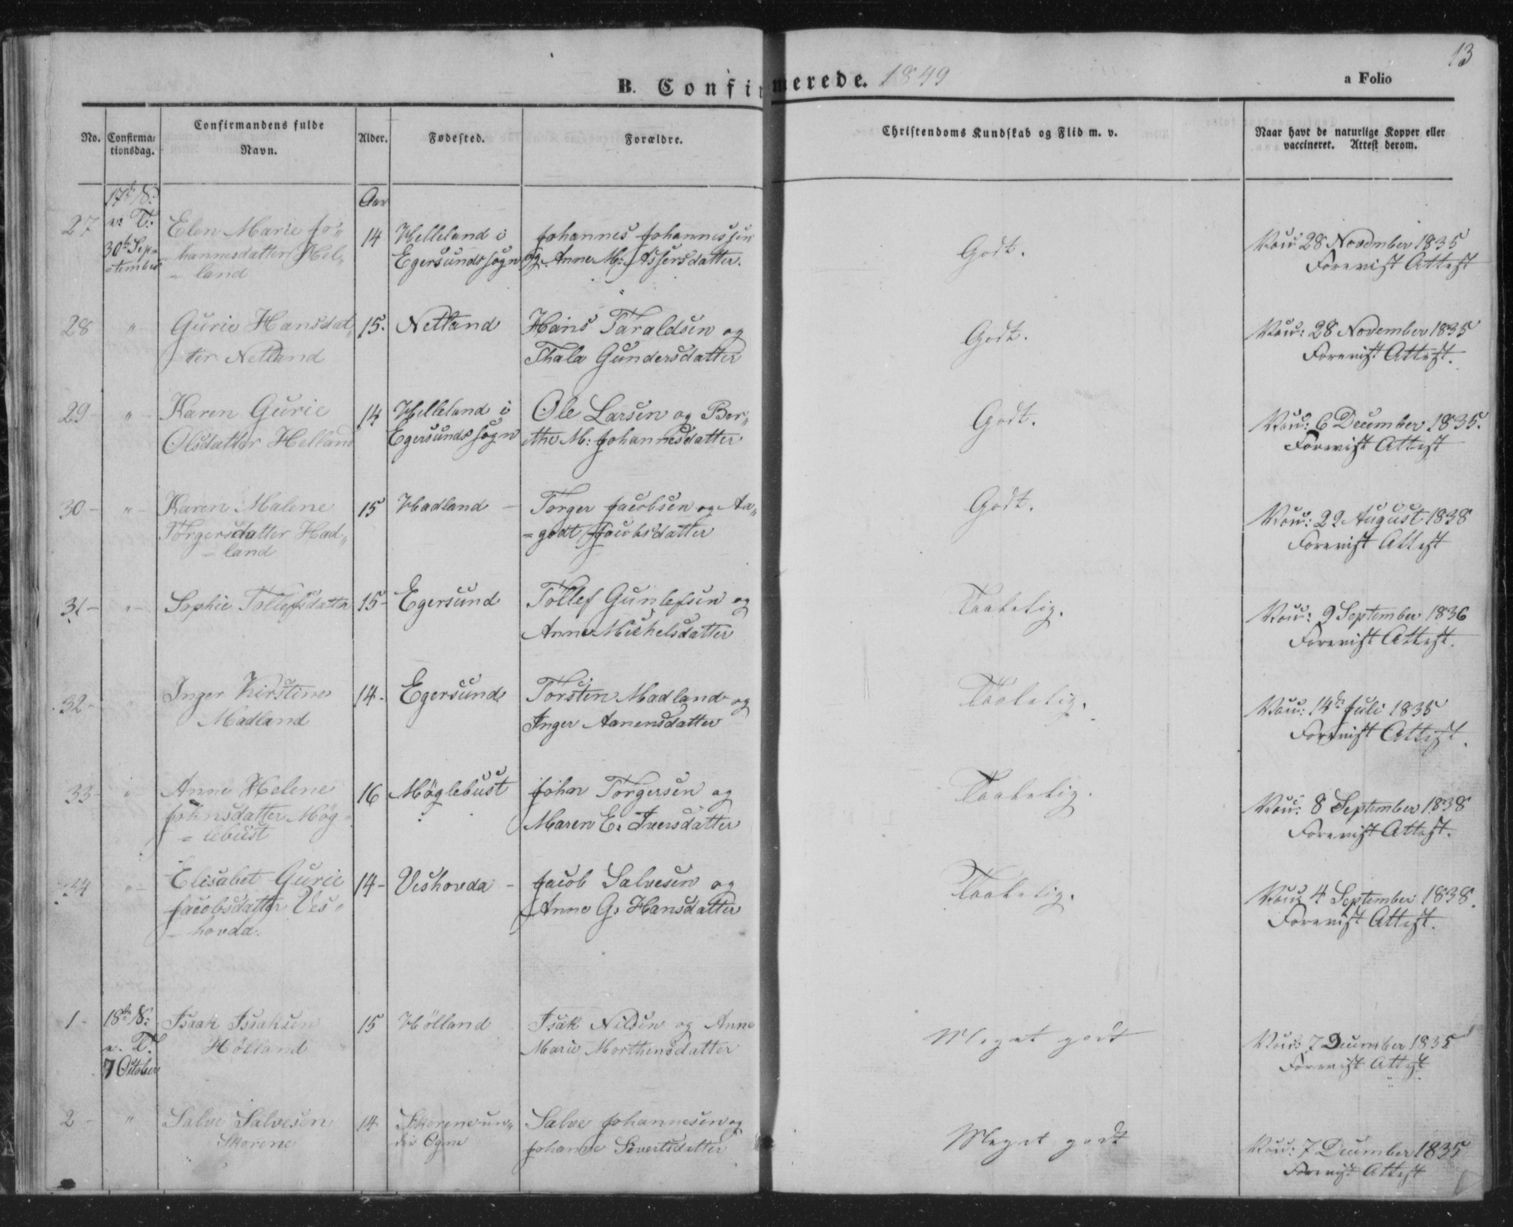 13
B. Confirmerede. 1849
a Folio
No.
Confirmationsdag.
Confirmandens fulde Navn.
Alder.
Fødested.
Forældre.
Christendoms Kundskab og Flid m. v.
Naar havt de naturlige Kopper eller vaccineret. Attest derom.
17de S: e: T:
30te September
Aar
27 Elen Marie Jo= 14 Helleland i Johannes Johannessen Godt. Vacc: 28 November 1835
hannesdatter Hel= Egersunds Sogn og Anne M: Assersdatter. Forevist Attest
land
28 " Gurie Hansdat= 15. Netland Hans Taraldsen og Godt. Vacc: 28 November 1835
ter Netland Thala Gundersdatter Forevist Attest.
29 - " - Karen Gurie 14 Helleland i Ole Larsen og Ber= Godt. Vacc: 6 December 1835.
Olsdatter Helland Egersunds Sogn the M: Johannesdatter Forevist Attest
30 - " - Karen Malene 15 Hadland - Torger Jacobsen og Aa= Godt. Vacc: 29 August 1838
Torgersdatter Had= =godt Jacobsdatter Forevist Attest
- land
31 - " - Sophie Tollefsdatter 15 - Egersund Tollef Gunlefsen og Taalelig. Vacc: 9 September 1836
Anne Michelsdatter Forevist Attest.
32 - " Inger Kirstine 14 - Egersund Torsten Madland og Taalelig. Vacc: 14de Juli 1835
Madland Inger Aanensdatter Forevist Attest.
33 - " Anne Helene 16 Møglebust John Torgersen og Taalelig. Vacc: 8 September 1838
Johnsdatter Møg= Maren E. Iversdatter Forevist Attest.
= lebust
34 " - Elisabet Gurie 14 - Veshovda - Jacob Salvesen og Taalelig. Vacc: 4 September 1838.
Jacobsdatter Ves= Anne G. Hansdatter Forevist Attest.
- hovda.
1 - 18de S: Isaak Isaksen 15 Hølland Isak Nilsen og Anne Meget godt Vacc: 7 December 1835
e. T. Hølland Marie Morthensdatter Forevist Attest
7 October
2 - " Salve Salvesen 14 Skorene un= Salve Johannesen og Meget godt Vacc: 7 December 1835
Skorene der Ogne Johanne Sivertsdatter Forevist Attest